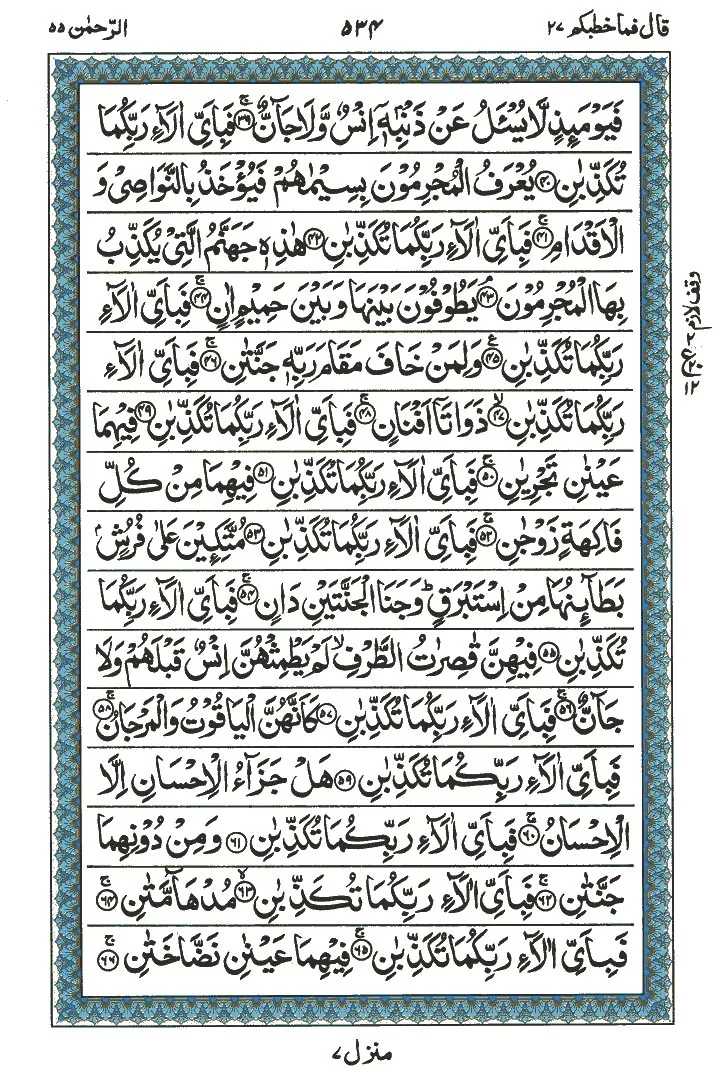 قال فما خطبكم ۲۷
۵۳۴
الرّحمٰن ۵۵
فَيَوْمَئِذٍ لَّا يُسْـَٔلُ عَنْ ذَنْۢبِهٖۤ اِنْسٌ وَّلَا جَآنٌّ ۚ‏﴿۳۹﴾ فَبِاَىِّ اٰلَآءِ رَبِّكُمَا
تُكَذِّبٰنِ ﴿۴۰﴾ يُعْرَفُ الْمُجْرِمُوْنَ بِسِيْمٰهُمْ فَيُؤْخَذُ بِالنَّوَاصِىْ وَ
الْاَقْدَامِ ۚ‏﴿۴۱﴾ فَبِاَىِّ اٰلَآءِ رَبِّكُمَا تُكَذِّبٰنِ ﴿۴۲﴾ هٰذِهٖ جَهَنَّمُ الَّتِىْ يُكَذِّبُ
بِهَا الْمُجْرِمُوْنَ ۘ‏﴿۴۳﴾ يَطُوْفُوْنَ بَيْنَهَا وَبَيْنَ حَمِيْمٍ اٰنٍ ۚ‏﴿۴۴﴾ فَبِاَىِّ اٰلَآءِ
رَبِّكُمَا تُكَذِّبٰنِ ﴿۴۵﴾ وَلِمَنْ خَافَ مَقَامَ رَبِّهٖ جَنَّتٰنِ ۚ‏﴿۴۶﴾ فَبِاَىِّ اٰلَآءِ
رَبِّكُمَا تُكَذِّبٰنِ ۙ‏﴿۴۷﴾ ذَوَاتَاۤ اَفْنَانٍ ۚ‏﴿۴۸﴾ فَبِاَىِّ اٰلَآءِ رَبِّكُمَا تُكَذِّبٰنِ ﴿۴۹﴾ فِيْهِمَا
عَيْنٰنِ تَجْرِيٰنِ ۚ‏﴿۵۰﴾ فَبِاَىِّ اٰلَآءِ رَبِّكُمَا تُكَذِّبٰنِ ﴿۵۱﴾ فِيْهِمَا مِنْ كُلِّ
فَاكِهَةٍ زَوْجٰنِ ۚ‏﴿۵۲﴾ فَبِاَىِّ اٰلَآءِ رَبِّكُمَا تُكَذِّبٰنِ ﴿۵۳﴾ مُتَّكِـِٕيْنَ عَلٰى فُرُشٍۢ
بَطَآئِنُهَا مِنْ اِسْتَبْرَقٍ ؕ وَجَنَا الْجَنَّتَيْنِ دَانٍ ۚ‏﴿۵۴﴾ فَبِاَىِّ اٰلَآءِ رَبِّكُمَا
تُكَذِّبٰنِ ﴿۵۵﴾ فِيْهِنَّ قٰصِرٰتُ الطَّرْفِ ۙ لَمْ يَطْمِثْهُنَّ اِنْسٌ قَبْلَهُمْ وَلَا
جَآنٌّ ۚ‏﴿۵۶﴾ فَبِاَىِّ اٰلَآءِ رَبِّكُمَا تُكَذِّبٰنِ ۚ‏﴿۵۷﴾ كَاَنَّهُنَّ الْيَاقُوْتُ وَالْمَرْجَانُ ۚ‏﴿۵۸﴾
فَبِاَىِّ اٰلَآءِ رَبِّكُمَا تُكَذِّبٰنِ ﴿۵۹﴾ هَلْ جَزَآءُ الْاِحْسَانِ اِلَّا
الْاِحْسَانُ ۚ‏﴿۶۰﴾ فَبِاَىِّ اٰلَآءِ رَبِّكُمَا تُكَذِّبٰنِ ﴿۶۱﴾ وَمِنْ دُوْنِهِمَا
جَنَّتٰنِ ۚ‏﴿۶۲﴾ فَبِاَىِّ اٰلَآءِ رَبِّكُمَا تُكَذِّبٰنِ ۙ‏﴿۶۳﴾ مُدْهَآمَّتٰنِ ۚ‏﴿۶۴﴾
فَبِاَىِّ اٰلَآءِ رَبِّكُمَا تُكَذِّبٰنِ ۚ‏﴿۶۵﴾ فِيْهِمَا عَيْنٰنِ نَضَّاخَتٰنِ ۚ‏﴿۶۶﴾
وقف لازم
منزل ۷